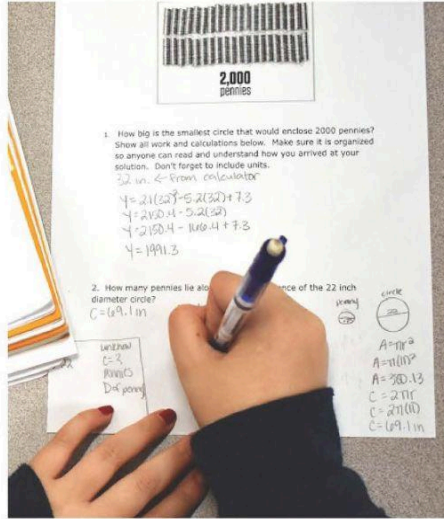 2,000
pennies
1. How big is the smallest circle that would enclose 2000 pennies?
Show all work and calculations below. Make sure it is organized
so anyone can read and understand how you arrived at your
solution. Don't forget to include units.
32 in. ← from calculator
y = 2.1(32)²-5.2(32)+7.3
y = 2150.4 - 5.2(32)
y = 2150.4 - 166.4 + 7.3
y = 1991.3
2. How many pennies lie alo nce of the 22 inch
diameter circle?
C = 69.1 in
penny
circle
22
unknown
C = ?
pennies
D of penny
A = πr²
A = π(11)²
A = 380.13
C = 2πr
C = 2π(11)
C = 69.1 in